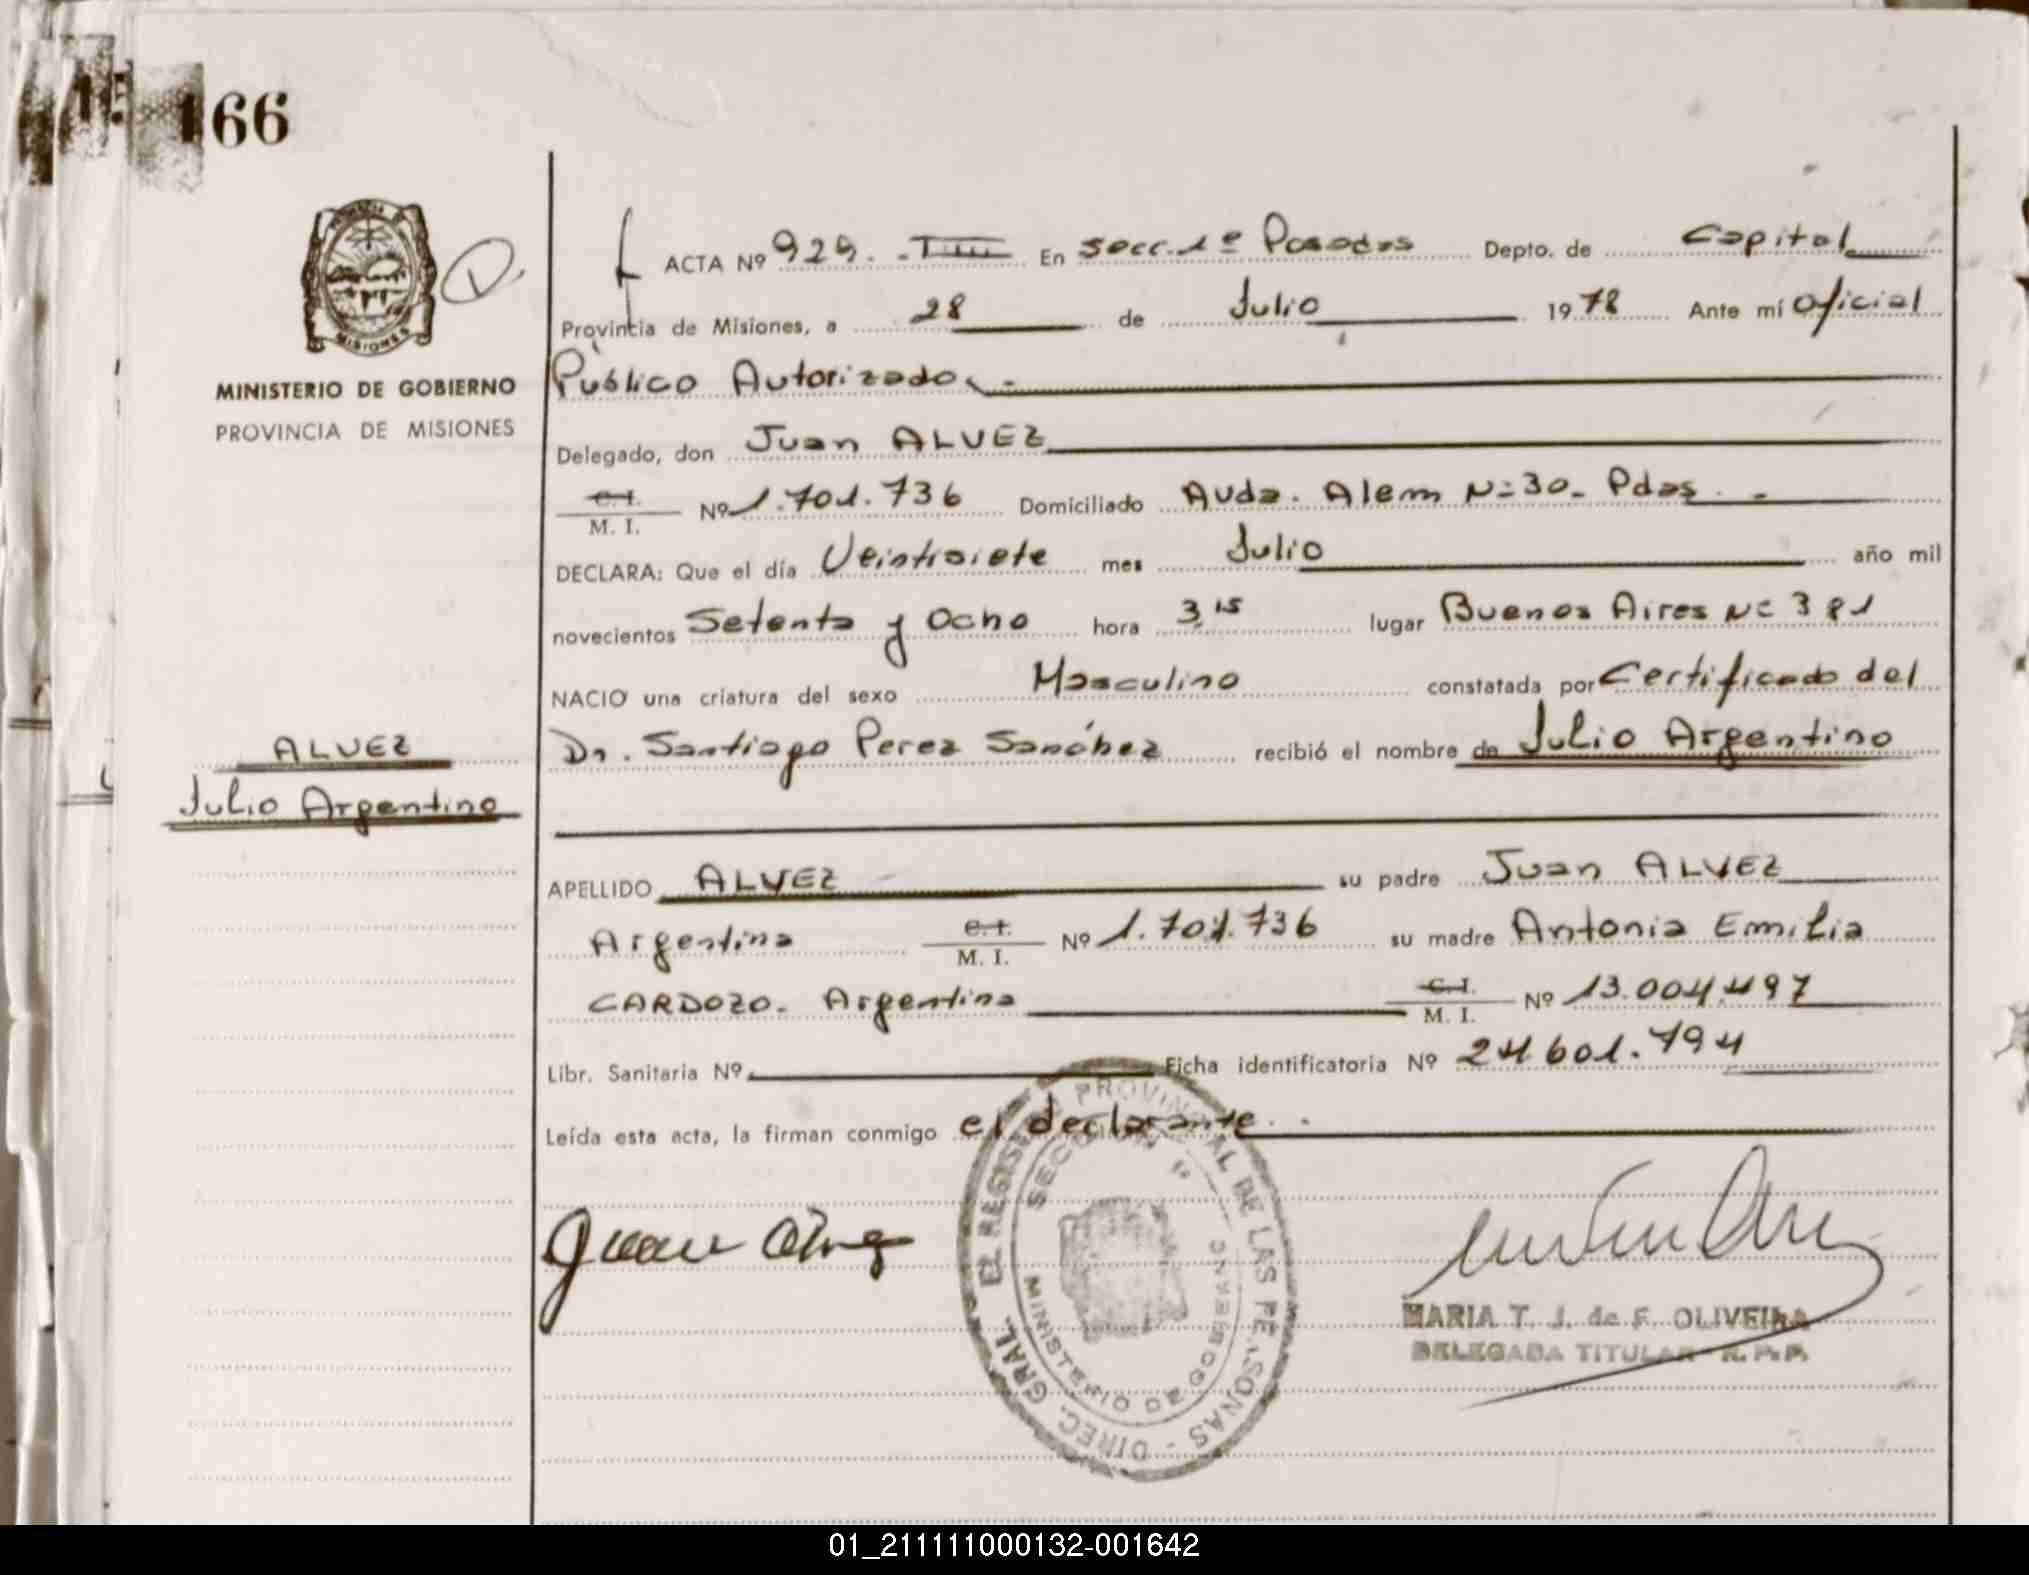 166
ACTA Nº 929. - IIII En Secc. 1º Posadas Depto. de Capital
Provincia de Misiones, a 28 de Julio 1978 Ante mí Oficial
Público Autorizado.-
MINISTERIO DE GOBIERNO
PROVINCIA DE MISIONES
Delegado, don Juan ALVEZ
C. I.
M. I. Nº 1.701.736 Domiciliado Avda. Alem Nº 30- Pdas. -
DECLARA: Que el día Veintisiete mes Julio año mil
novecientos Setenta y Ocho hora 3,15 lugar Buenos Aires Nº 381
NACIO una criatura del sexo Masculino constatada por Certificado del
Dr. Santiago Perez Sanchez recibió el nombre de Julio Argentino
ALVEZ
Julio Argentino
APELLIDO ALVEZ su padre Juan ALVEZ
Argentina C. I. M. I. Nº 1.701.736 su madre Antonia Emilia
CARDOZO. Argentina C. I. M. I. Nº 13.004.497
Libr. Sanitaria Nº Ficha identificatoria Nº 24.601.794
Leída esta acta, la firman conmigo el declarante. -
Juan Alvez
DIREC. GRAL. EL REGISTRO PROVINCIAL DE LAS PERSONAS
SECCION 1º
MINISTERIO DE GOBIERNO
MARIA T. J. de F. OLIVEIRA
DELEGADA TITULAR R. P. P.
01_211111000132-001642